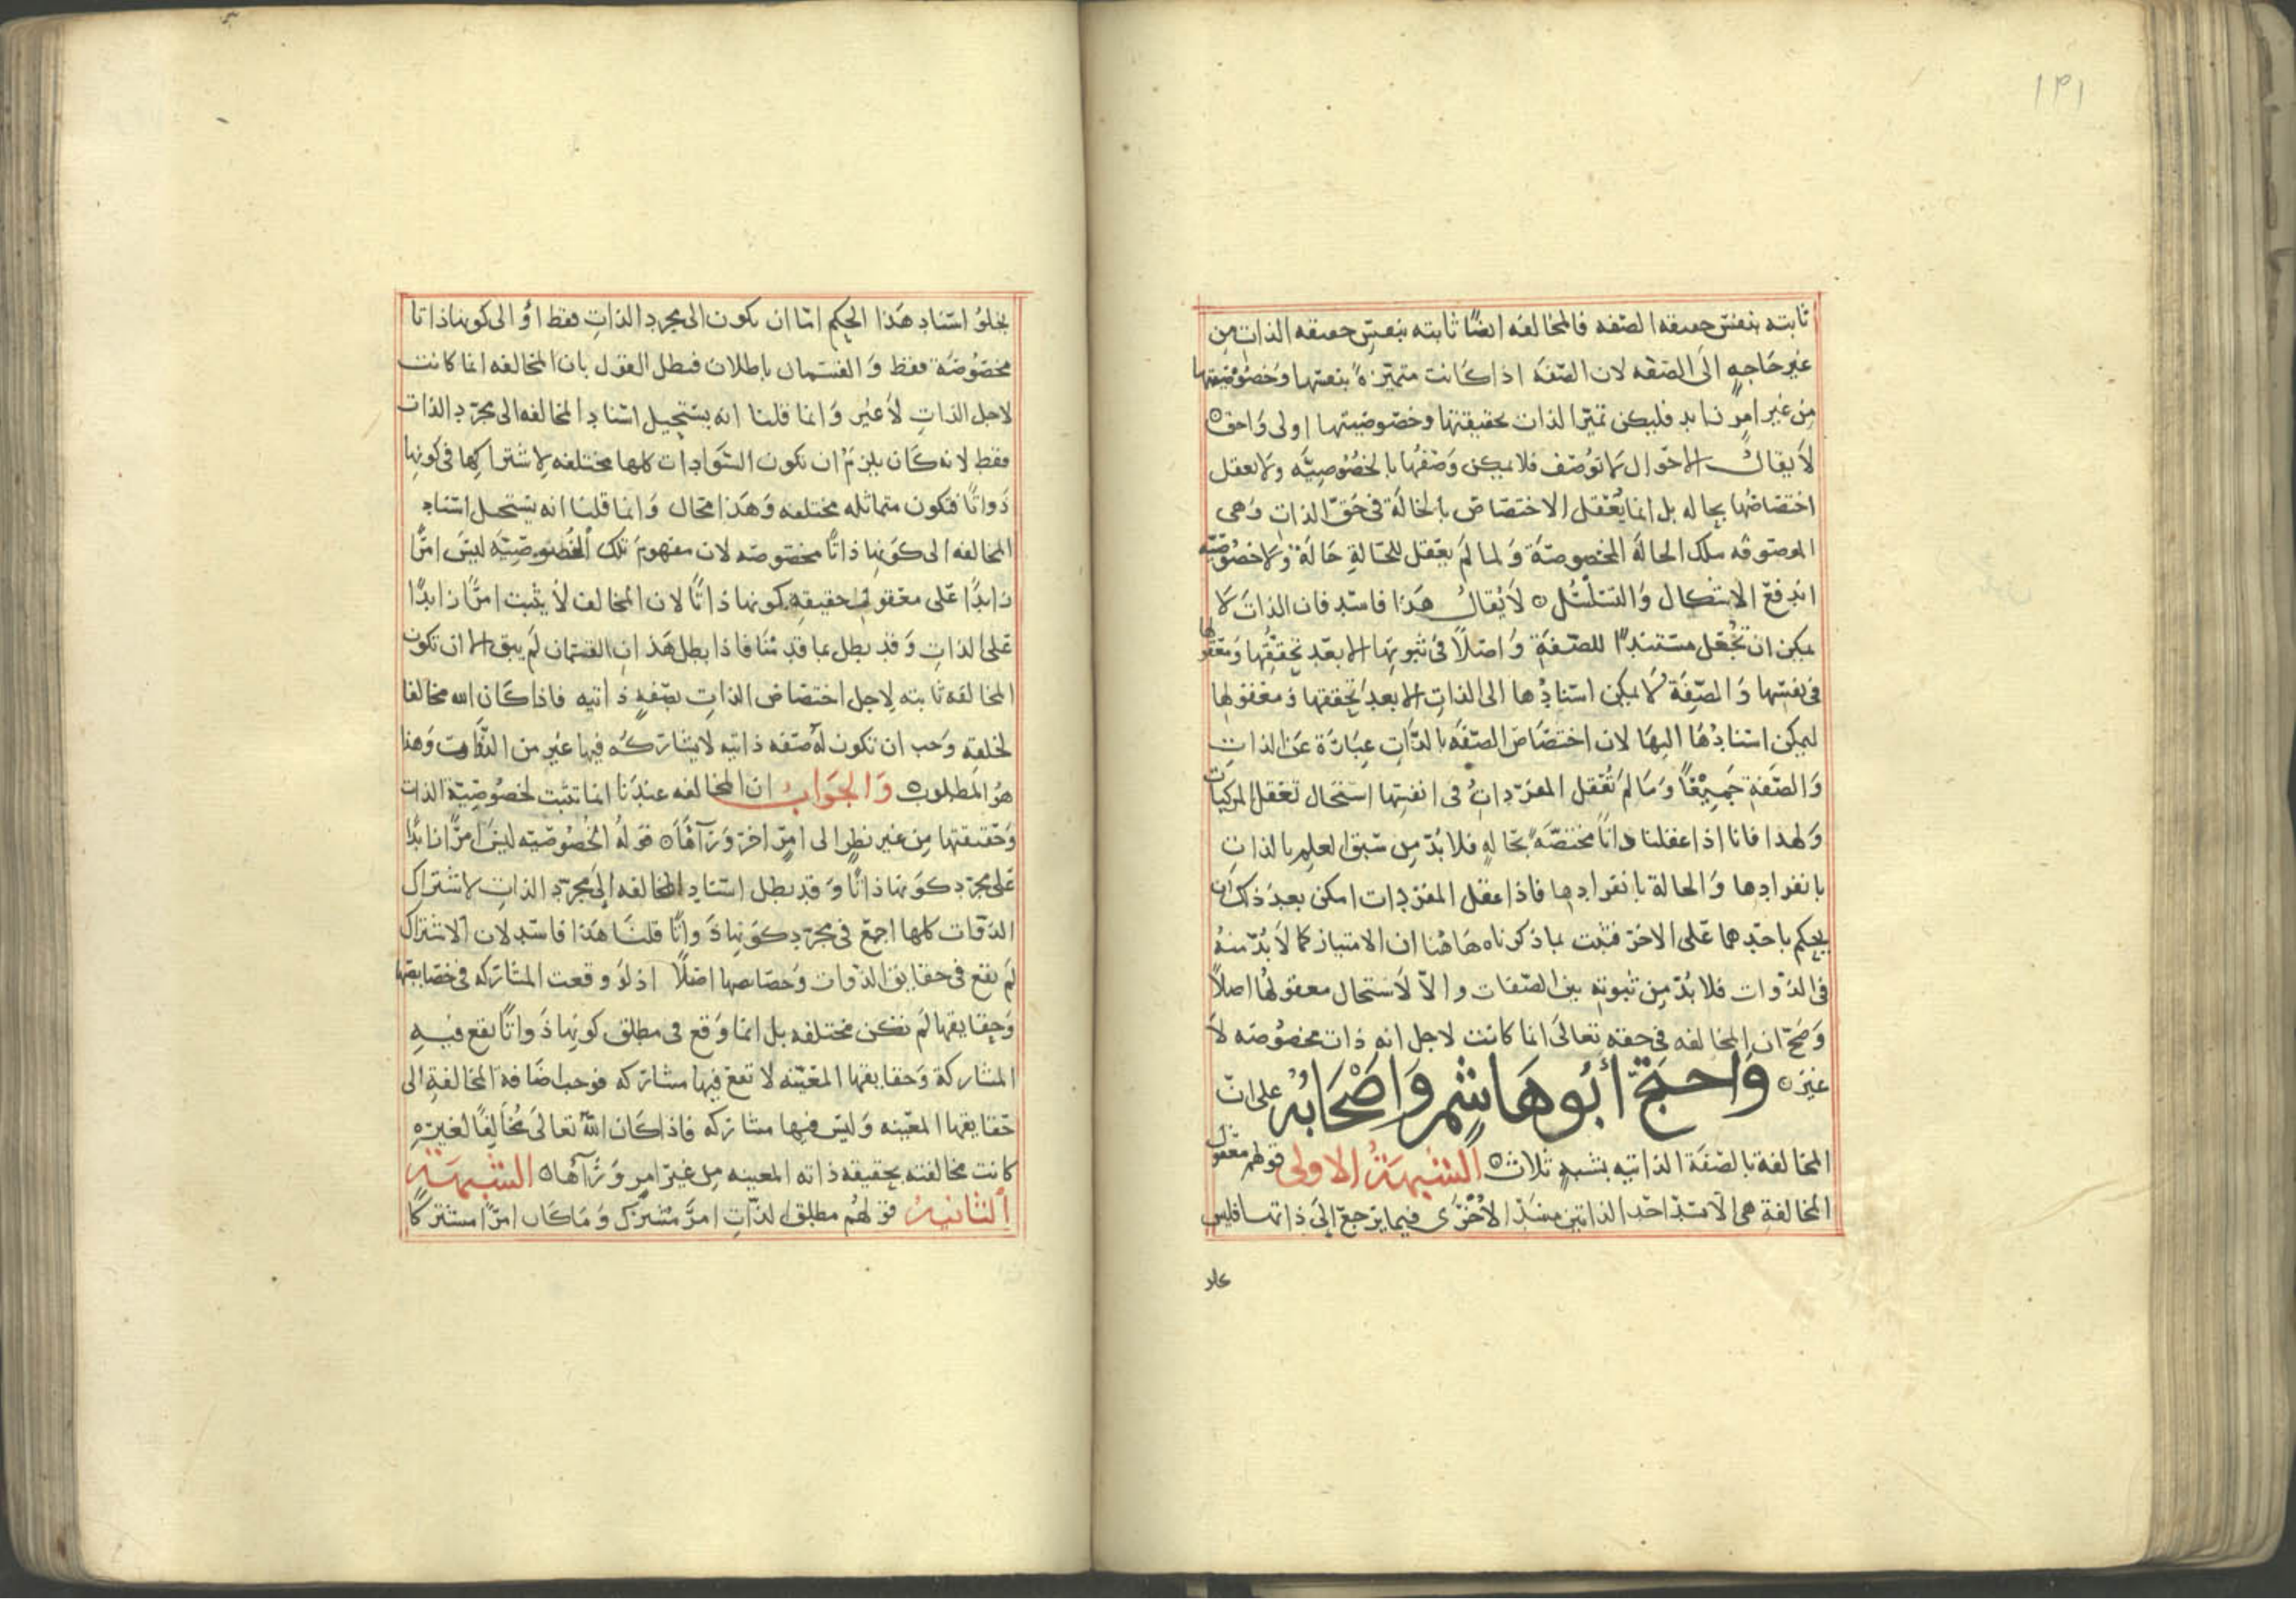 ١٣١
ثابته بنفس حقيقه الصفه فالمخالفه ايضًا ثابته بنفس حقيقه الذات من
غير حاجهٍ الى الصفه لان الصفه اذا كانت متميزة بنفسها وخصوصيتها
من غير امر زايد فليكن تميز الذات بحقيقتها وخصوصيتها اولى واحق
لا يقال الاحوال لا توصف فلا يمكن وصفها بالخصوصيَّه ولا يعقل
اختصاصها بحاله بل انما يُعقل الاختصاص بالحالة في حق الذات وهى
الموصوفه بتلك الحالة المخصوصة ولما لم يعقل للحالةِ حَالَة ولا خصوصيّه
اندفع الاشكال والتسلسُل لا يُقال هذا فاسد فان الذات لا
يمكن ان تجعل مستندًا للصفةِ واصلاً في ثبوتها الا بعد تحققها ومعقولها
في نفسها والصفة لا يمكن اسنادُها الى الذات الا بعد تحققها ومعقولها
ليمكن اسنادُها اليها لان اختصاص الصفه بالذات عبارة عن الذات
والصفةِ جميعًا وما لم تُعقل المفردات في انفسها استحال تعقل المركبات
ولهذا فانا اذا عقلنا ذاتًا مختصّه بحالهٍ فلا بُدّ من سبق العلم بالذات
بانفرادها والحالة بانفرادها فاذا عقل المفردات امكن بعد ذلك ان
يحكم باحدهما على الاخر فثبت بما ذكرناه هَاهنا ان الامتياز كما لا بُدّ منهُ
في الذوات فلا بُدّ من ثبوته بين الصفات والاّ لاستحال معقولها اصلاً
وَضح ان المخالفه في حقه تعالى انما كانت لاجل انه ذات مخصوصه لا
غير وَاحتجّ أبُو هَاشِم وَاصْحَابُه على انّ
المخالفة بالصفة الذاتيه بشبهٍ ثلاث الشبهةُ الاولى قولهم معقول
المخالفةِ هى الا تسد احد الذاتين مسَدّ الأخرى فيما يرجع الى ذاتها فليس
يخلو
يخلوُ اسناد هَذا الحكم امّا ان يكون الى مجرد الذات فقط او الى كونها ذاتا
مخصوصَة فقط والقسمان باطلان فبطل القول بان المخالفه انما كانت
لاجل الذات لا غير وانما قلنا انه يستحيل اسناد المخالفه الى مجرّد الذات
فقط لانه كان يلزم ان تكون السَّوادات كلها مختلفه لاشتراكها في كونها
ذواتًا فتكون متماثله مختلفه وهَذا محال وَانما قلنا انه يستحيل اسناد
المخالفه الى كونها ذاتًا مخصوصه لان مفهوم تلك الخُصُوصيَّه ليس امرًا
زايدًا على معقول حقيقهِ كونها ذاتًا لان المخالف لا يثبت امرًا زايدًا
على الذات وقد بطل بما قدمنا فاذا بطل هذان القسمان لم يبق الا ان تكون
المخالفه ثابته لاجل اختصاص الذات بصفهٍ ذاتيه فاذا كان الله مخالفا
لخلقه وجب ان تكون له صفه ذاتيه لا يشاركه فيها غير من الذوات وهذا
هو المطلوب وَالجَوَابُ ان المخالفه عندنا انما تثبت لخصوصيَّة الذات
وحقيقتها من غير نظرٍ الى امرٍ اخر وَرآهَا قوله الخُصُوصيّه ليس امرًا زايدًا
على مجرد كونها ذاتًا وقد بطل اسناد المخالفه الى مجرّد الذات لاشتراك
الذوات كلها اجمع في مجرّد كونها ذواتًا قلنا هَذا فاسد لان الاشتراك
لم يقع في حقايق الذوات وخصايصها اصلاً اذ لو وقعت المشاركه في خصايصها
وحقايقها لم تكن مختلفه بل انما وقع في مطلق كونها ذواتًا يقع فيهِ
المشاركة وحقايقها المعيّنه لا تقع فيها مشاركه فوجب اضافة المخالفةِ الى
حقايقها المعيّنه وليس فيها مشاركه فاذا كان اللهُ تعالى مُخالِفًا لغيره
كانت مخالفته بحقيقه ذاته المعينه من غير امرٍ ورآهَا الشبهَةُ
الثانيةُ قولهُم مطلق الذات امرٌ مشترك وَمَا كان امرًا مشتركًا